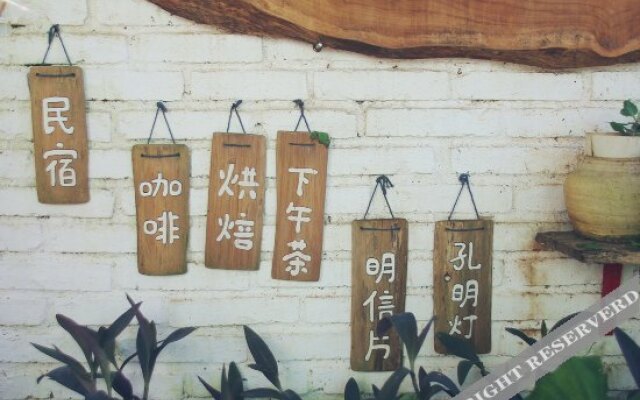 民宿
咖啡
烘焙
下午茶
明信片
孔明灯
RIGHT RESERVERD